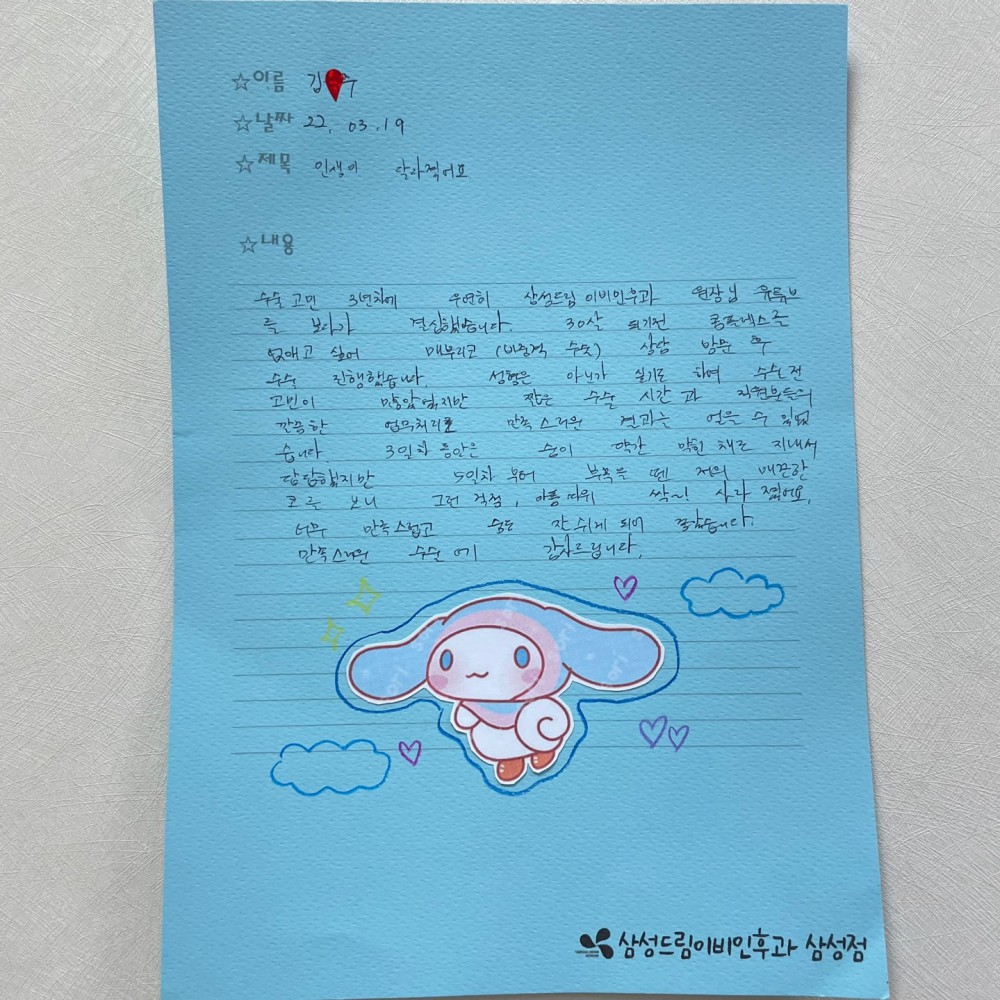 ☆이름 김 수
☆날짜 22. 03. 19
☆제목 인생이 달라졌어요
☆내용
수술 고민 3년차에 우연히 삼성드림 이비인후과 원장님 유튜브
를 보다가 결심했습니다. 30살 되기전 콤플렉스를
없애고 싶어 매부리코 (비중격 수술) 상담 방문 후
수술 진행했습니다. 성형은 아닌가 싶기도 하여 수술 전
고민이 많았었지만 짧은 수술 시간과 직원분들의
깔끔한 업무처리로 만족스러운 결과를 얻을 수 있었
습니다. 3일차 동안은 숨이 약간 막힌 채로 지내서
답답했지만 5일차 부터 부목을 뗀 저의 매끈한
코를 보니 그런 걱정, 아픔 따위 싹~! 사라졌어요.
너무 만족스럽고 숨도 잘 쉬게 되어 좋았습니다.
만족스러운 수술에 감사드립니다.
삼성드림이비인후과 삼성점